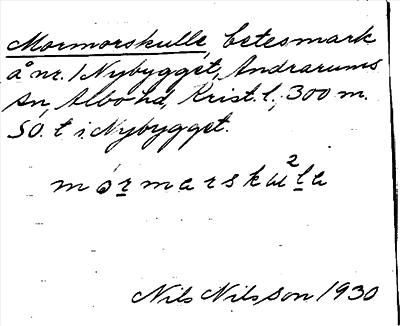 Mormorskulle, betesmark
å nr. 1 Nybygget, Andrarums
sn, Albo hd, Krist. l., 300 m.
SO. t i Nybygget.
mormarskul²a
Nils Nilsson 1930